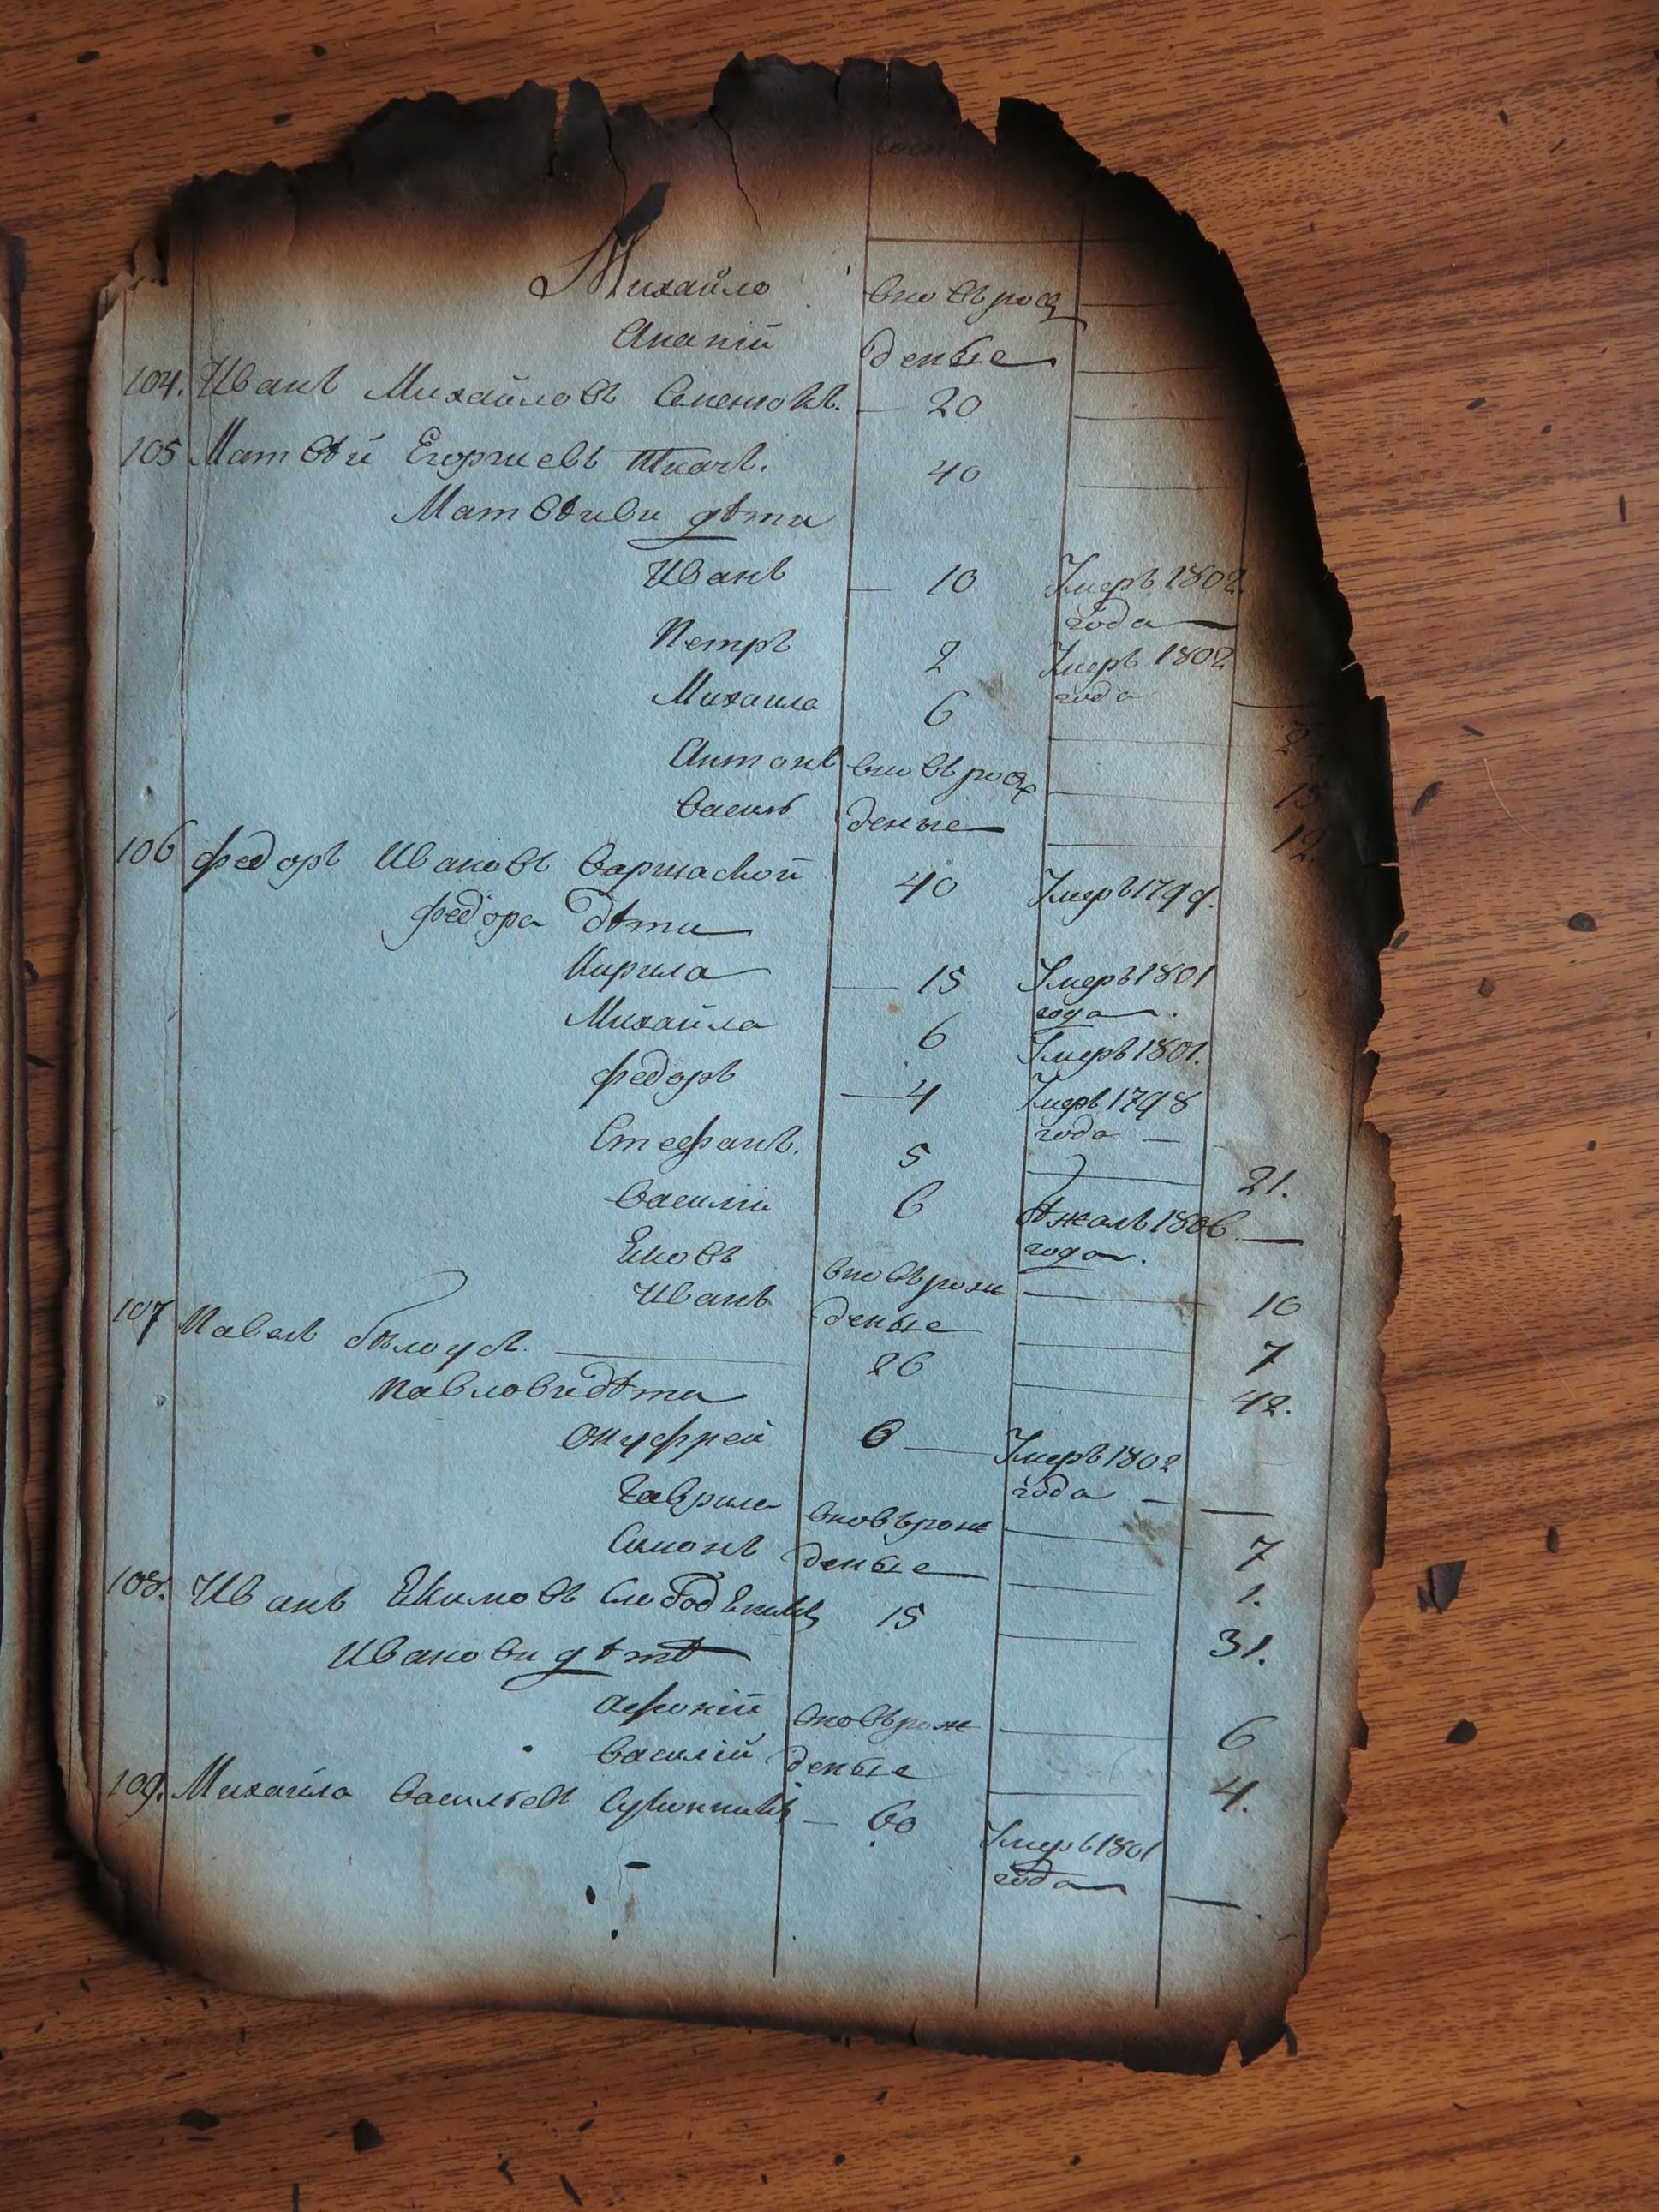 Михайло вновь рож
Ананій деные
104. Иванъ Михайловъ Семенюкъ. — 20
105 Матвѣй Егоргиевъ Ткачъ. 40
Матвѣиви дѣти
Иванъ — 10 Умеръ 1802
года
Петръ 2 Умеръ 1802
года
Михаила 6
Антонъ вновь рож 15
Василь деные 12.
106 Федоръ Ивановъ Варшаской 40 Умеръ 1799.
Федора дѣти
Кирила — 15 Умеръ 1801
года.
Михайла 6 Умеръ 1801.
Федоръ — 4 Умеръ 1798
года —
Стефанъ. 5 21.
Василій 6 бѣжалъ 1806 —
года.
Яковъ вновь рож 10
Иванъ деные 7
107 Павелъ бѣлоусъ. 26 42.
Павлови дѣти
Онуфрей 6 — Умеръ 1802
года —
Гаврила вновь рож 7
Симонъ деные 1.
108. Иванъ Екимовъ 15 31.
Иванови дѣтѣ
Афоній вновь рож 6
Василій деные 4.
109. Михайла Васильевъ — 60 Умеръ 1801
года —